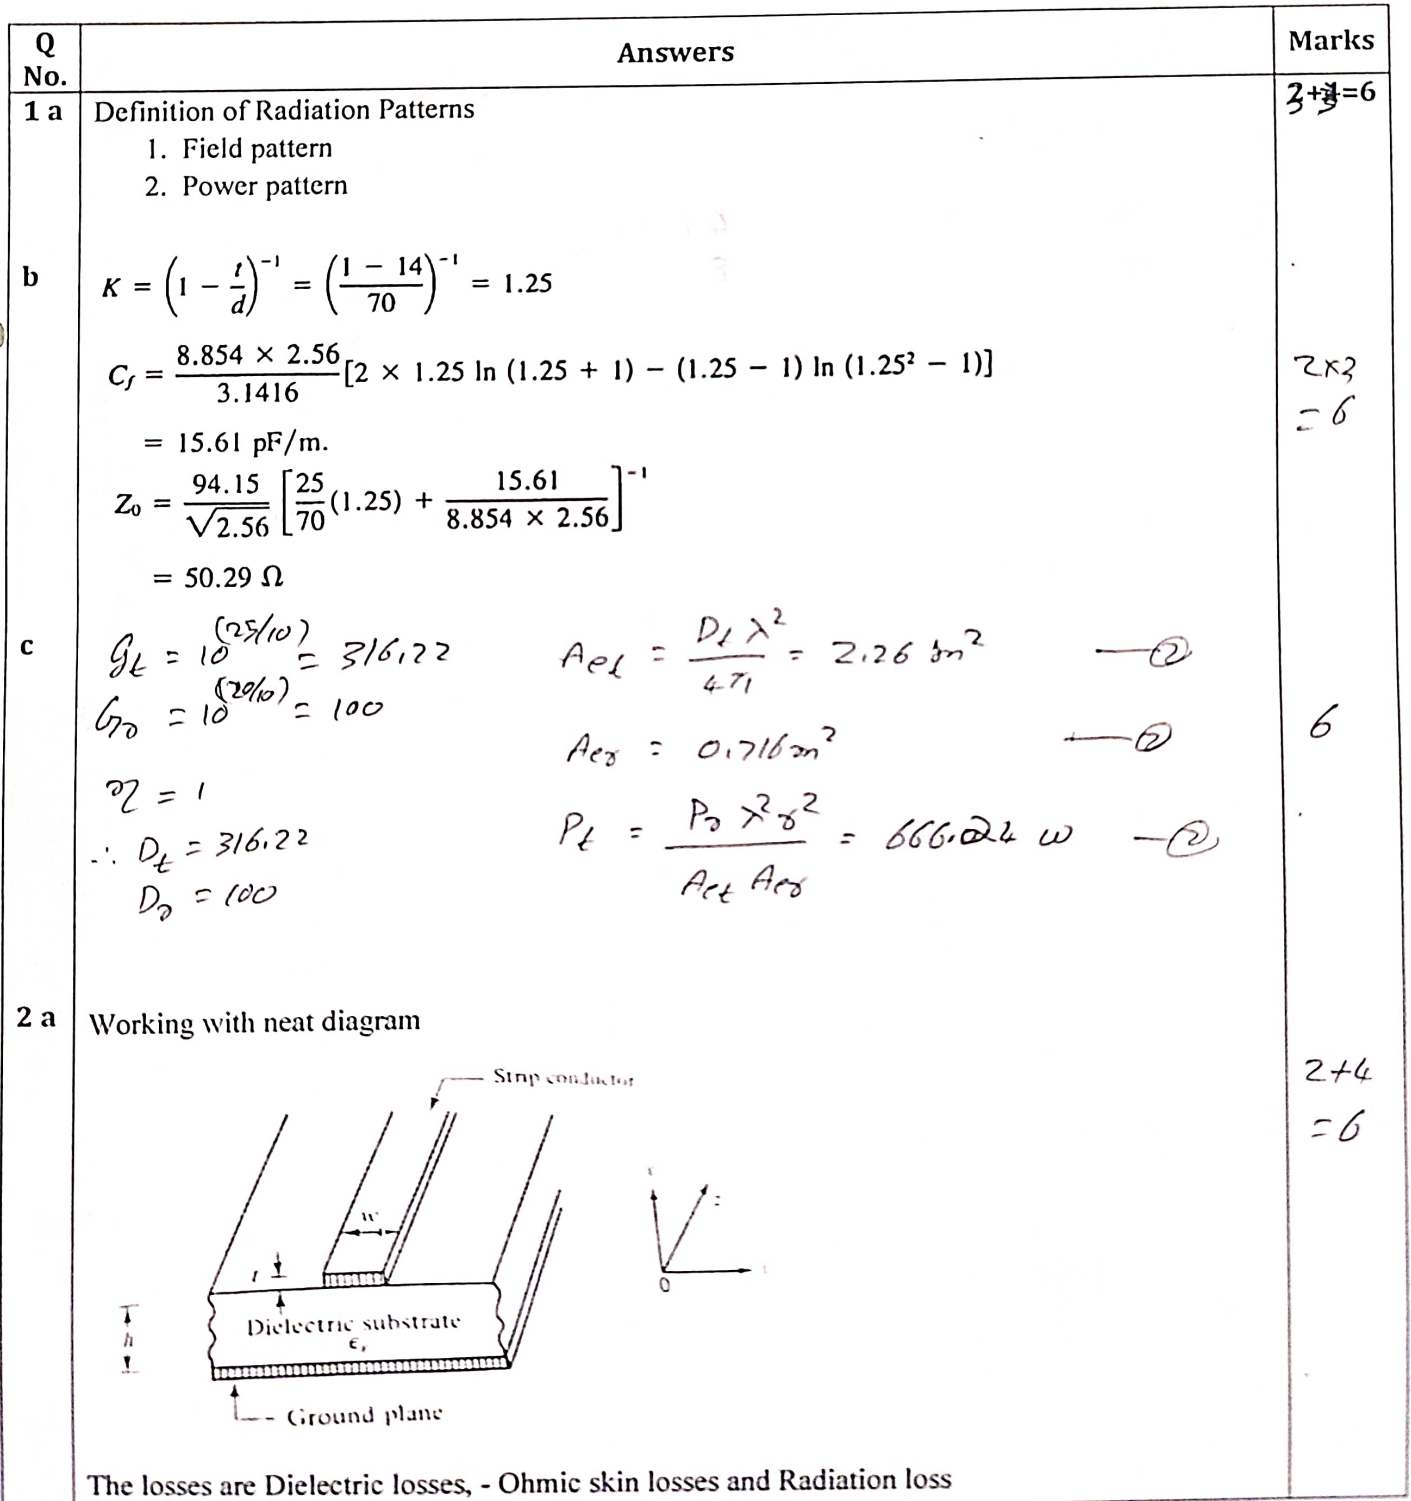 Q No.
Answers
Marks
1 a
Definition of Radiation Patterns
=6
1. Field pattern
2. Power pattern
b
K = (1 − t/d)^−1 = ((1 − 14)/70)^−1 = 1.25
C_f = (8.854 × 2.56)/3.1416 [2 × 1.25 ln (1.25 + 1) − (1.25 − 1) ln (1.25² − 1)]
2×3
= 6
= 15.61 pF/m.
Z₀ = 94.15/√2.56 [25/70 (1.25) + 15.61/(8.854 × 2.56)]^−1
= 50.29 Ω
c
G_t = 10^(25/10) = 316.22
A_et = D_t λ²/4π = 2.26 m² —②
G_r = 10^(20/10) = 100
A_er = 0.716 m² —②
6
η = 1
∴ D_t = 316.22
P_t = P_r λ² r²/(A_et A_er) = 666.24 W —②
D_r = 100
2 a
Working with neat diagram
2+4
=6
Strip conductor
w
z
t
0
h
Dielectric substrate
ϵ_r
Ground plane
The losses are Dielectric losses, - Ohmic skin losses and Radiation loss